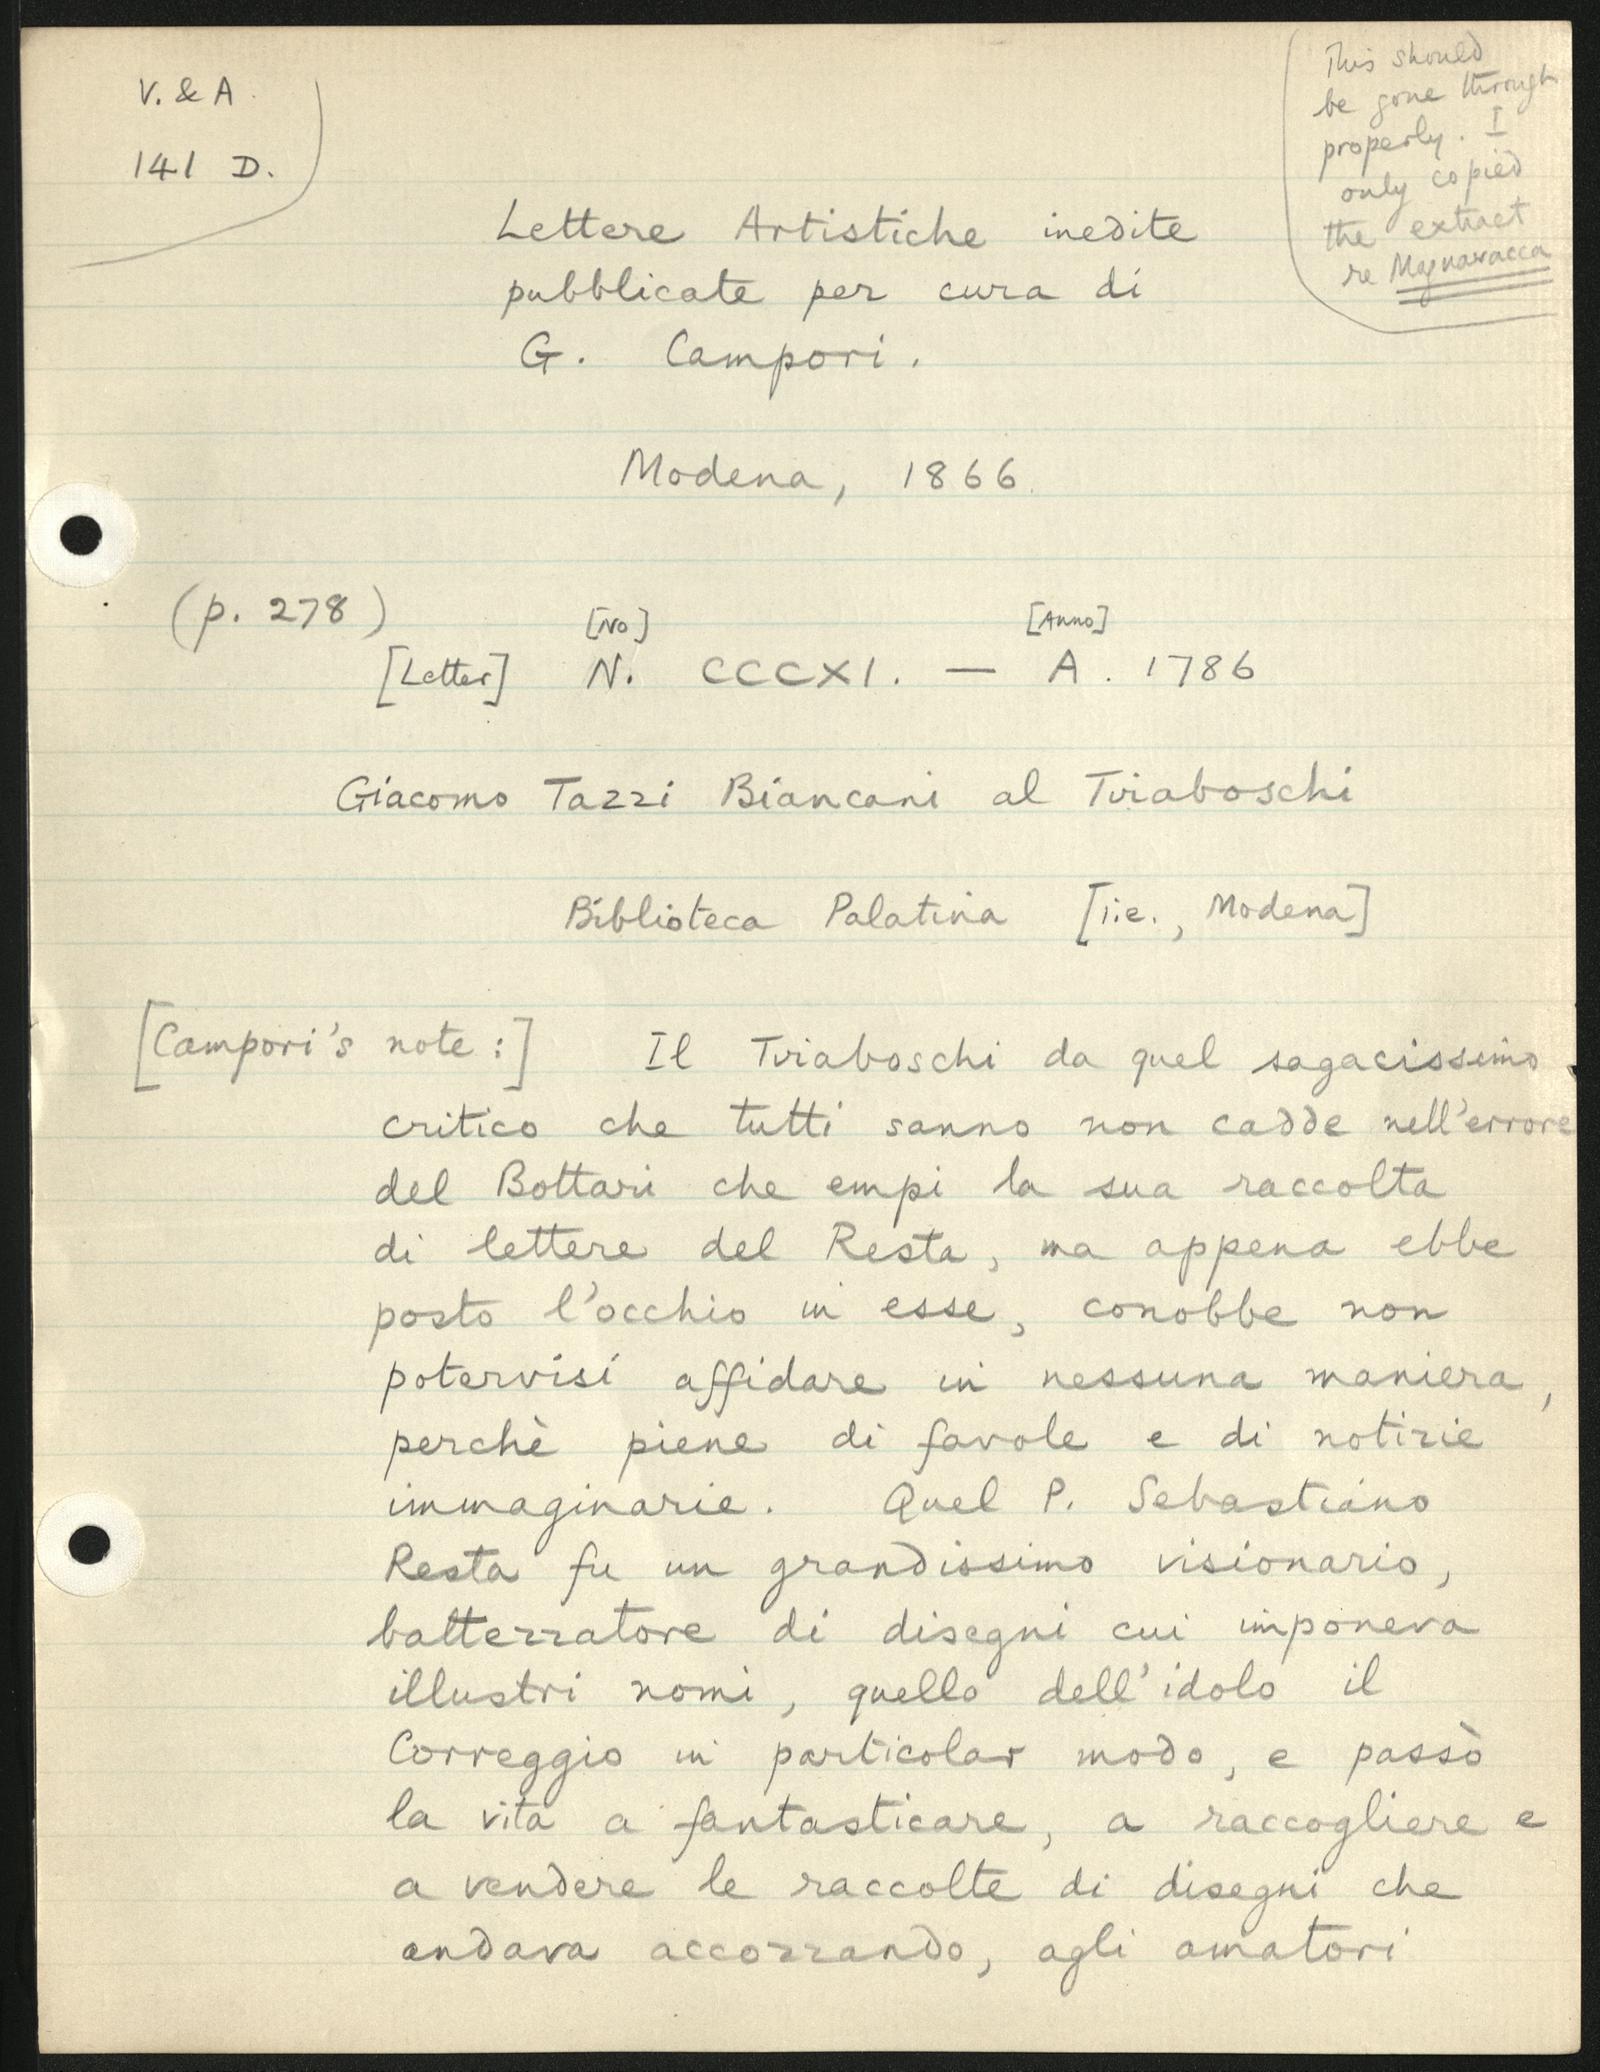 V. & A.
141 D.
This should
be gone through
properly. I
only copied
the extract
re Magnavacca
Lettere Artistiche inedite
pubblicate per cura di
G. Campori.
Modena, 1866.
(p. 278)
[No] [Anno]
[Letter] N. CCCXI. — A. 1786
Giacomo Tazzi Biancani al Triaboschi
Biblioteca Palatina [i.e., Modena]
[Campori's note:] Il Triaboschi da quel sagacissimo
critico che tutti sanno non cadde nell'errore
del Bottari che empi la sua raccolta
di lettere del Resta, ma appena ebbe
posto l'occhio in esse, conobbe non
potervisi affidare in nessuna maniera,
perchè piene di favole e di notizie
immaginarie. Quel P. Sebastiano
Resta fu un grandissimo visionario,
battezzatore di disegni cui imponeva
illustri nomi, quello dell'idolo il
Correggio in particolar modo, e passò
la vita a fantasticare, a raccogliere e
a vendere le raccolte di disegni che
andava accozzando, agli amatori